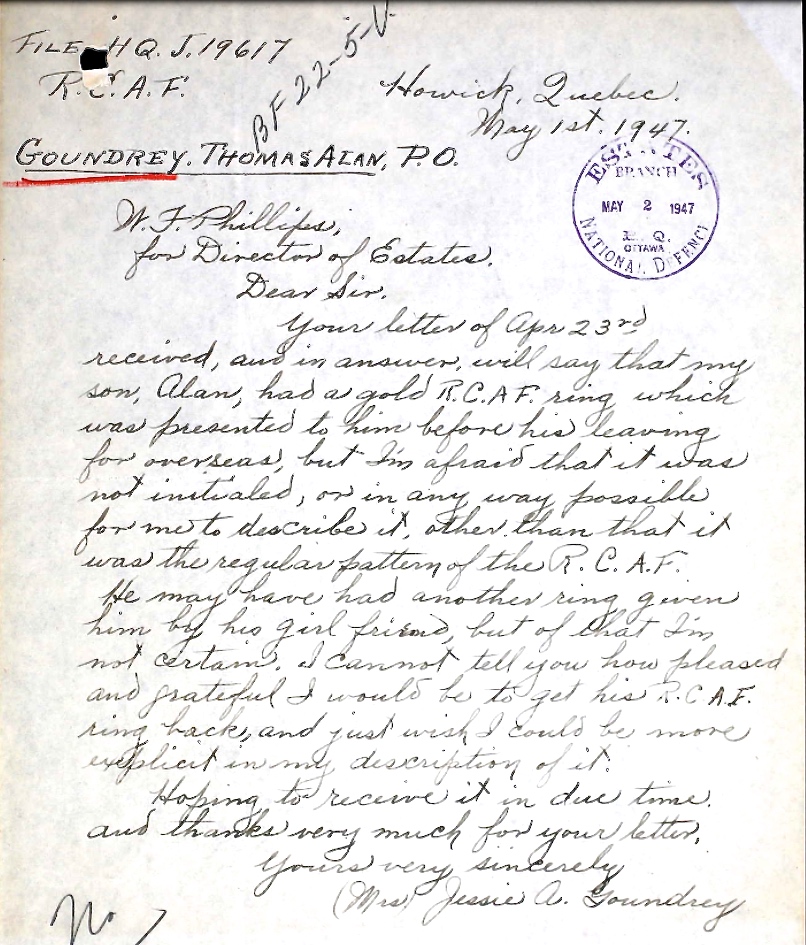 FILE HQ. J. 19617
R.C.A.F.
BF 22-5-
Howick, Quebec.
May 1st. 1947.
GOUNDREY, THOMAS ALAN, P.O.
ESTATES
BRANCH
MAY 2 1947
H.Q.
OTTAWA
NATIONAL DEFENCE
W. F. Phillips,
for Director of Estates.
Dear Sir.
Your letter of Apr 23rd
received, and in answer, will say that my
son, Alan, had a gold R.C.A.F. ring which
was presented to him before his leaving
for overseas, but I'm afraid that it was
not initialed, or in any way possible
for me to describe it, other than that it
was the regular pattern of the R.C.A.F.
He may have had another ring given
him by his girl friend, but of that I'm
not certain. I cannot tell you how pleased
and grateful I would be to get his R.C.A.F.
ring back, and just wish I could be more
explicit in my description of it.
Hoping to receive it in due time.
and thanks very much for your letter.
Yours very sincerely
(Mrs) Jessie A. Goundrey